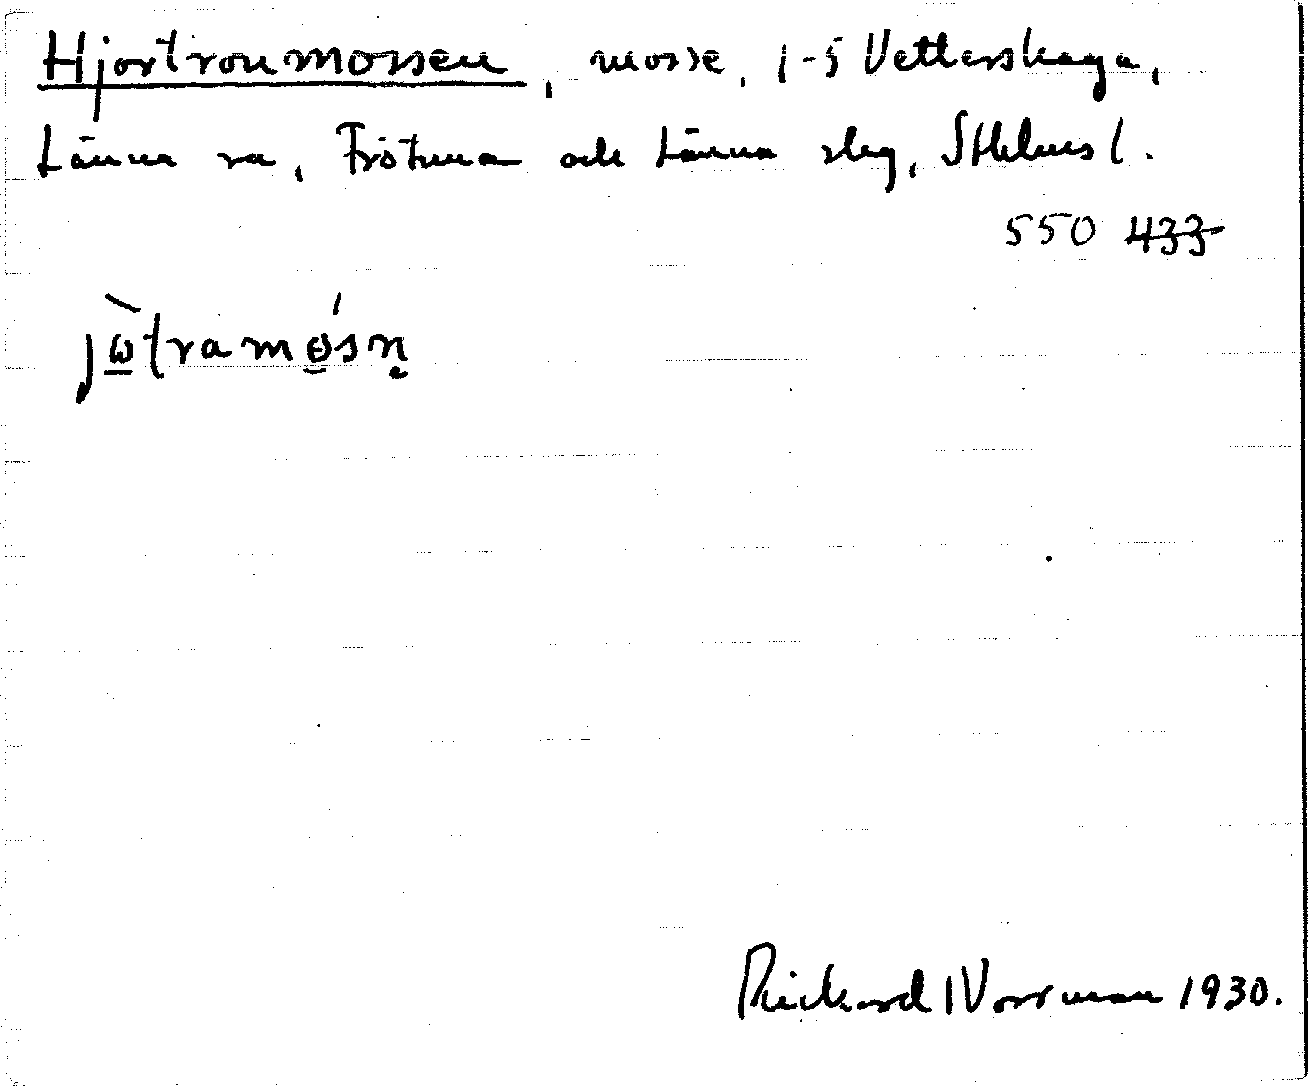 Hjortronmossen, mosse, 1-5 Vettershaga,
Länna sn, Frötuna och Länna skg, Sthlms l.
550 433
jὼ̲tramö́sn̥
Rickard Norrman 1930.